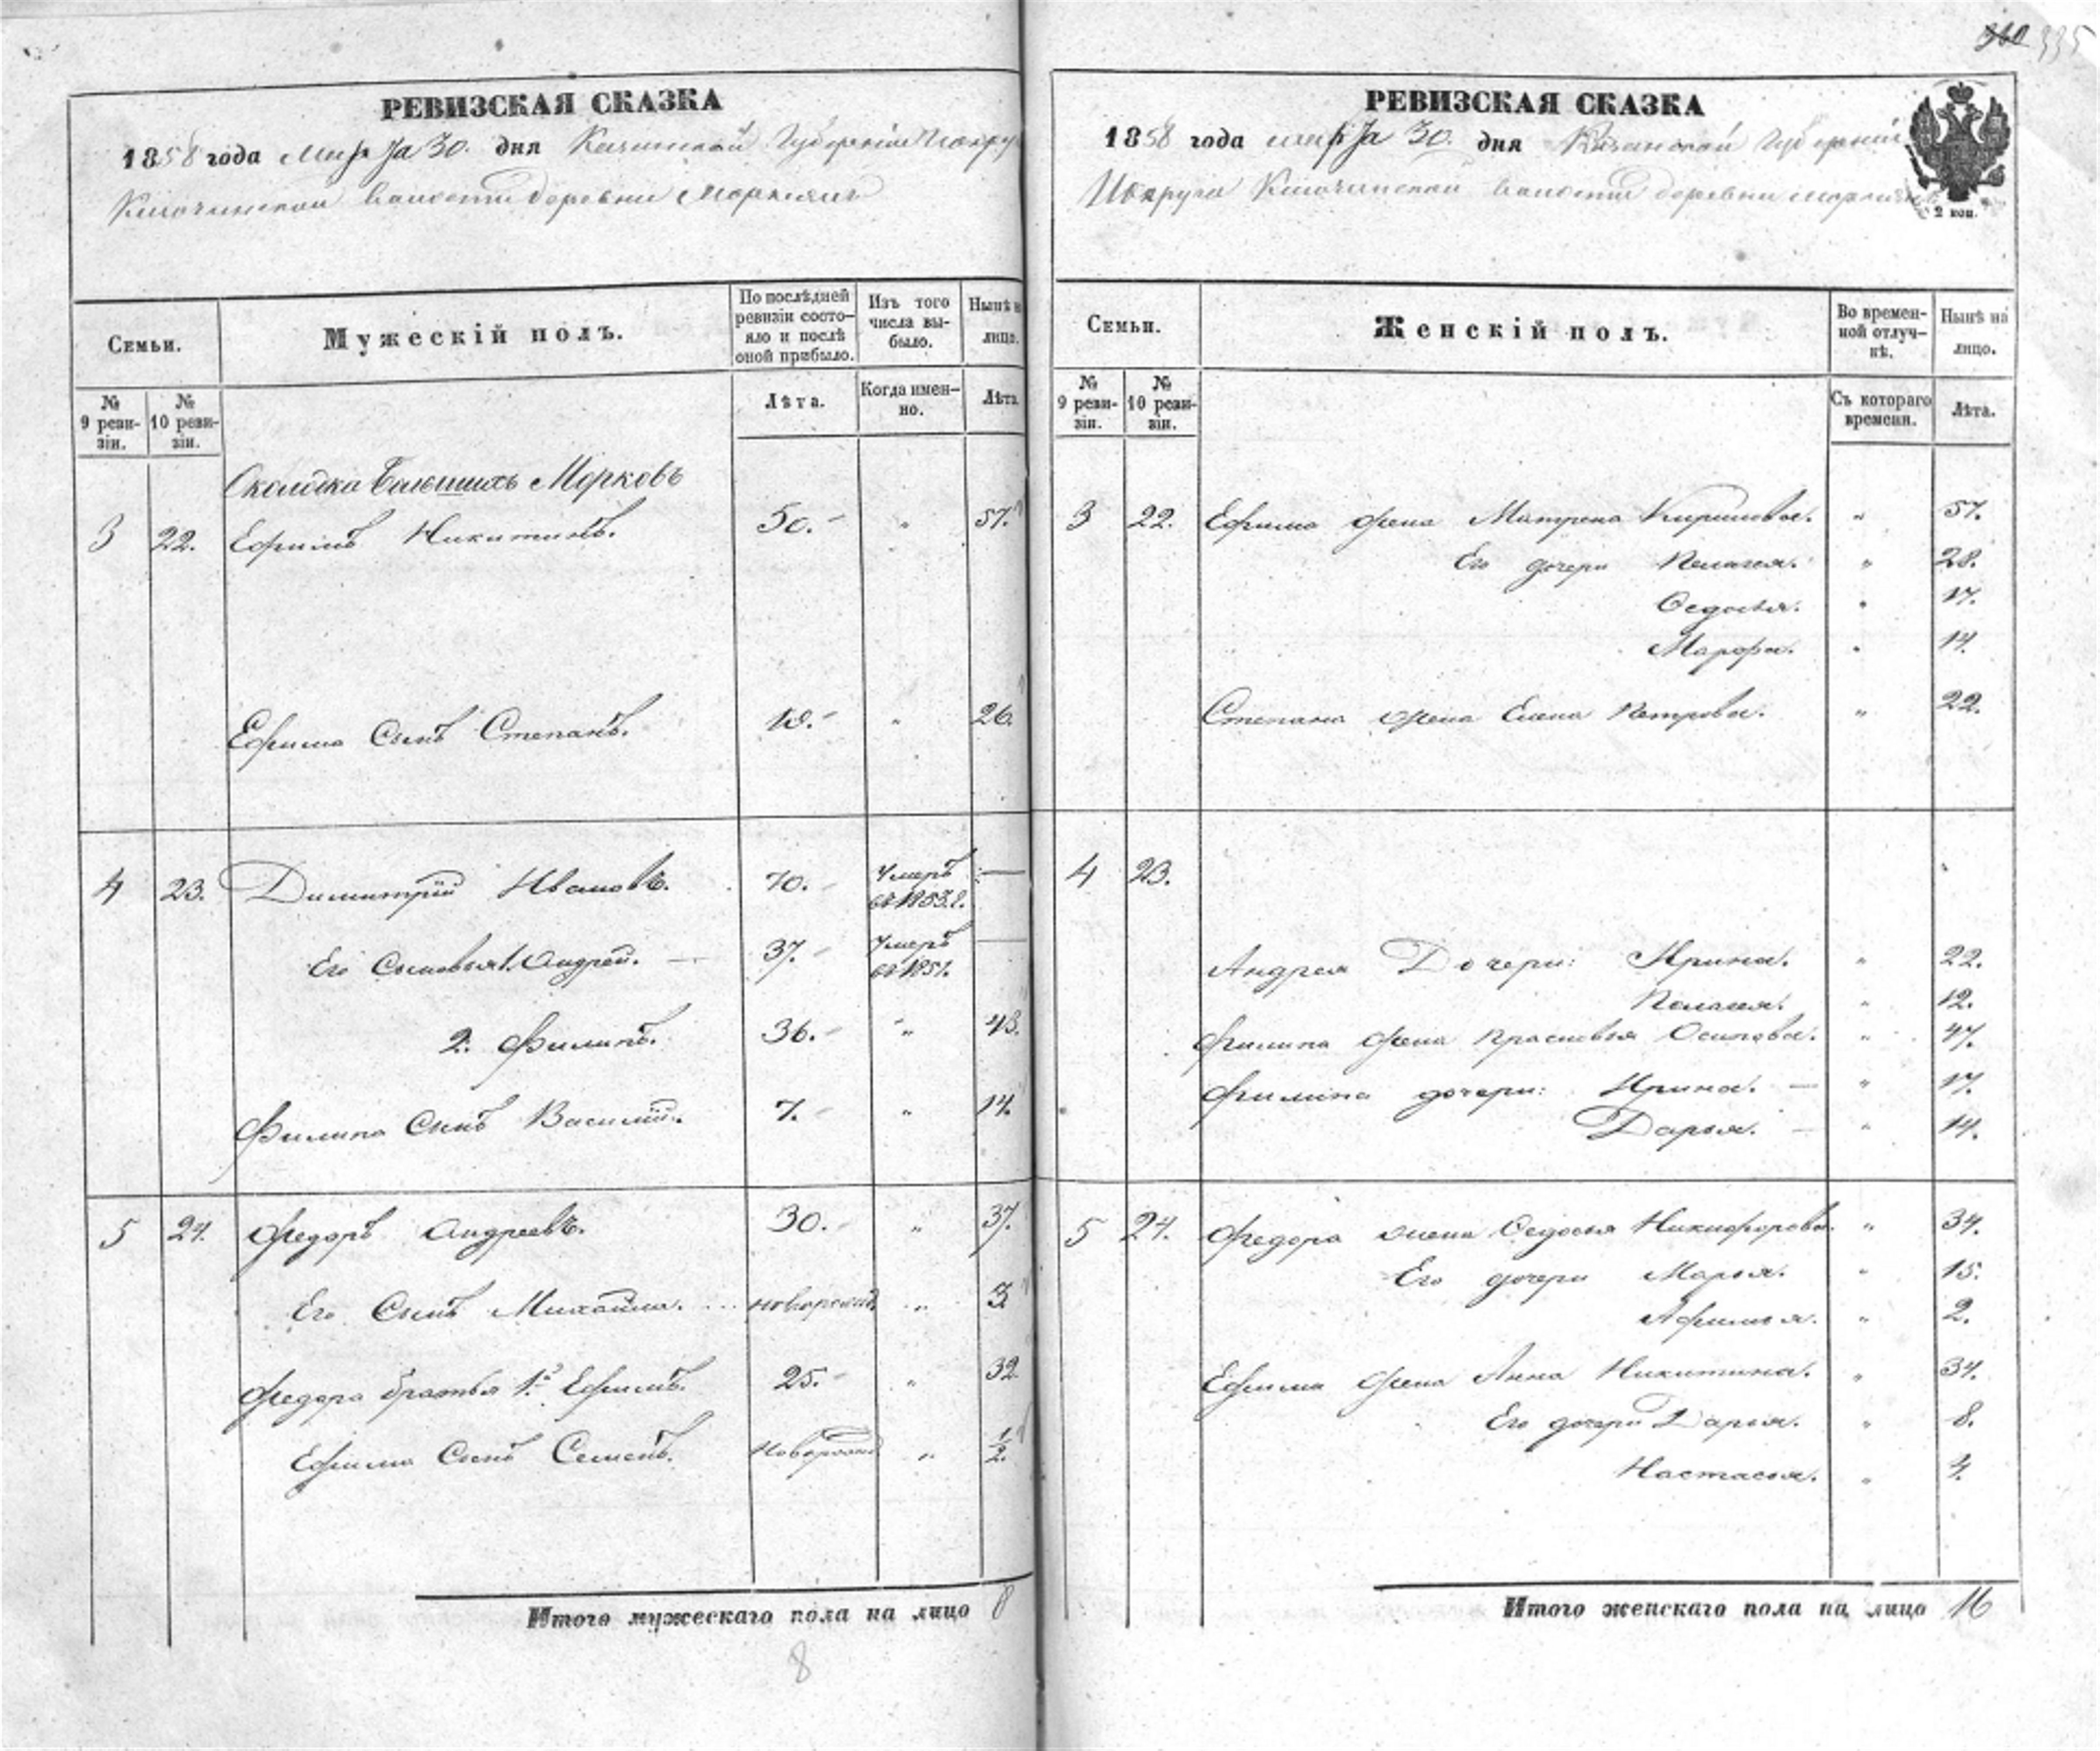 335
РЕВИЗСКАЯ СКАЗКА
1858 года Марта 30. дня Казанской Губернии
волости деревни
Семьи.
Мужескій полъ.
По послѣдней ревизіи состо-
яло и послѣ
оной прибыло.
Изъ того
числа вы-
было.
Нынѣ н
лицо.
№
9 реви-
зіи.
№
10 реви-
зіи.
Лѣта.
Когда имен-
но.
Лѣта.
Морковъ
3 22. Ефимъ Никитинъ. 50. „ 57.
Ефима Сынъ Степанъ. „ 26.
4 23. Димитрій Ивановъ. 70. Умеръ въ 1853 г. —
Его Сыновья 1. Андрей. — 37. Умеръ въ 1851. —
2. Филипъ. 36. „ 43.
Филипа Сынъ Василій. 7. „ 14.
5 24. Федоръ Андреевъ. 30. „ 37.
Его Сынъ Михайла. новорожд „ 3
Федора братья 1й Ефимъ. 25. „ 32
Ефима Сынъ Семенъ. Новорожд „ 1/2.
Итого мужескаго пола на лицо 8
8
РЕВИЗСКАЯ СКАЗКА
1858 года марта 30. дня Казанской Губерніи
Округа волости деревни
2 коп.
Семьи.
Женскій полъ.
Во времен-
ной отлуч-
кѣ.
Нынѣ на
лицо.
№
9 реви-
зіи.
№
10 реви-
зіи.
Съ котораго
времени.
Лѣта.
3 22. Ефима жена Матрена Кирилова. „ 57.
Его дочери Пелагея. „ 28.
Федосья. „ 17.
Марфа. „ 14.
Степана жена Елена Петрова. „ 22.
4 23.
Андрея Дочери: Ирина. „ 22.
Пелагея. „ 12.
Филипа жена Прасковья Осипова. „ 47.
Филипа дочери: Ирина. — „ 17.
Дарья. — „ 14.
5 24. Федора жена Федосья Никифорова. „ 34.
Его дочери Марья. „ 15.
Афимья. „ 2.
Ефима жена Анна Никитина. „ 34.
Его дочери Дарья. „ 8.
Настасья. „ 4.
Итого женскаго пола на лицо 16